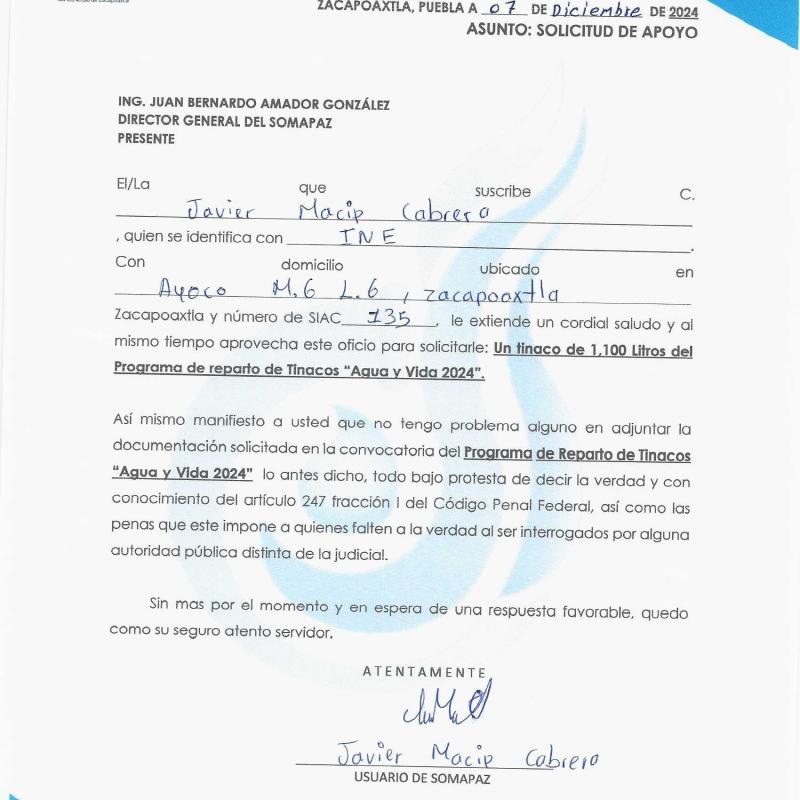 ZACAPOAXTLA, PUEBLA A 07 DE Diciembre DE 2024
ASUNTO: SOLICITUD DE APOYO
ING. JUAN BERNARDO AMADOR GONZÁLEZ
DIRECTOR GENERAL DEL SOMAPAZ
PRESENTE
El/La que suscribe C.
Javier Macip Cabrera
, quien se identifica con INE.
Con domicilio ubicado en
Ayoco M.6 L.6 , Zacapoaxtla
Zacapoaxtla y número de SIAC 135, le extiende un cordial saludo y al
mismo tiempo aprovecha este oficio para solicitarle: Un tinaco de 1,100 Litros del
Programa de reparto de Tinacos “Agua y Vida 2024”.
Así mismo manifiesto a usted que no tengo problema alguno en adjuntar la
documentación solicitada en la convocatoria del Programa de Reparto de Tinacos
“Agua y Vida 2024” lo antes dicho, todo bajo protesta de decir la verdad y con
conocimiento del artículo 247 fracción I del Código Penal Federal, así como las
penas que este impone a quienes falten a la verdad al ser interrogados por alguna
autoridad pública distinta de la judicial.
Sin mas por el momento y en espera de una respuesta favorable, quedo
como su seguro atento servidor.
ATENTAMENTE
Javier Macip Cabrera
USUARIO DE SOMAPAZ